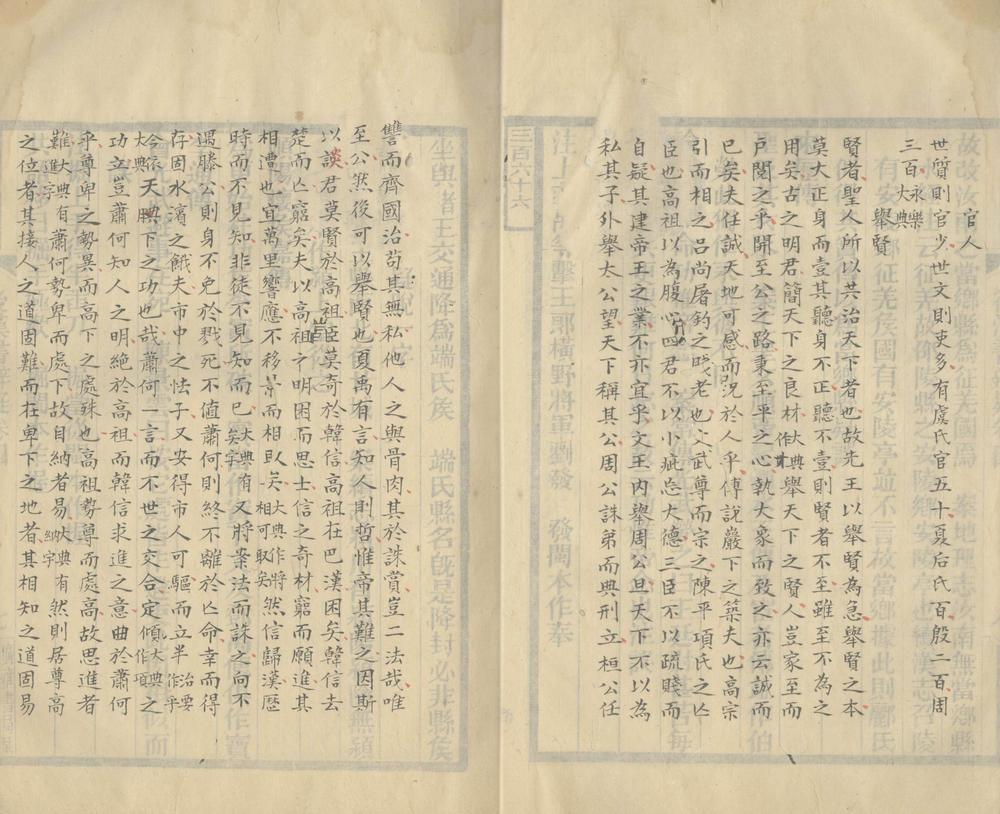 官人
世質則官少世文則吏多有虞氏官五十夏后氏百殷二百周
三百永樂大典
舉賢
賢者聖人所以共治天下者也故先王以舉賢為急舉賢之本
莫大正身而壹其聽身不正聽不壹則賢者不至雖至不為之
用矣古之明君簡天下之良材大典作求舉天下之賢人豈家至而
戶閱之乎開至公之路秉至平之心執大象而致之亦云誠而
已矣夫任誠天地可感而況於人乎傅說巖下之築夫也高宗
引而相之呂尚屠釣之賤老也文武尊而宗之陳平項氏之亡
臣也高祖以為腹心四君不以小疵忘大德三臣不以疏賤而
自疑其建帝王之業不亦宜乎文王內舉周公旦天下不以為
私其子外舉太公望天下稱其公周公誅弟而典刑立桓公任
讐而齊國治苟其無私他人之與骨肉其於誅賞豈二法哉唯
至公然後可以舉賢也夏禹有言知人則哲惟帝其難之因斯
以談君莫賢於高祖臣莫奇於韓信高祖在巴漢困矣韓信去
楚而亡窮矣夫以高祖之明困而思士信之奇材窮而願進其
相遭也宜萬里響應不移景而相取矣大典作將相可取矣然信歸漢歷
時而不見知非徒不見知而已大典有矣字又將案法而誅之向不
遇滕公則身不免於戮死不值蕭何則終不離於亡命幸而得
存固水濱之餓夫市中之怯子又安得市人可驅而立乎治要作平
今依大典天下之功也哉蕭何一言而不世之交合定傾大典作項之
功立豈蕭何知人之明絕於高祖而韓信求進之意曲於蕭何
乎尊卑之勢異而高下之處殊也高祖勢尊而處高故思進者
難大典有進字蕭何勢卑而處下故自納者易大典有納字然則居尊高
之位者其接人之道固難而在卑下之地者其相知之道固易